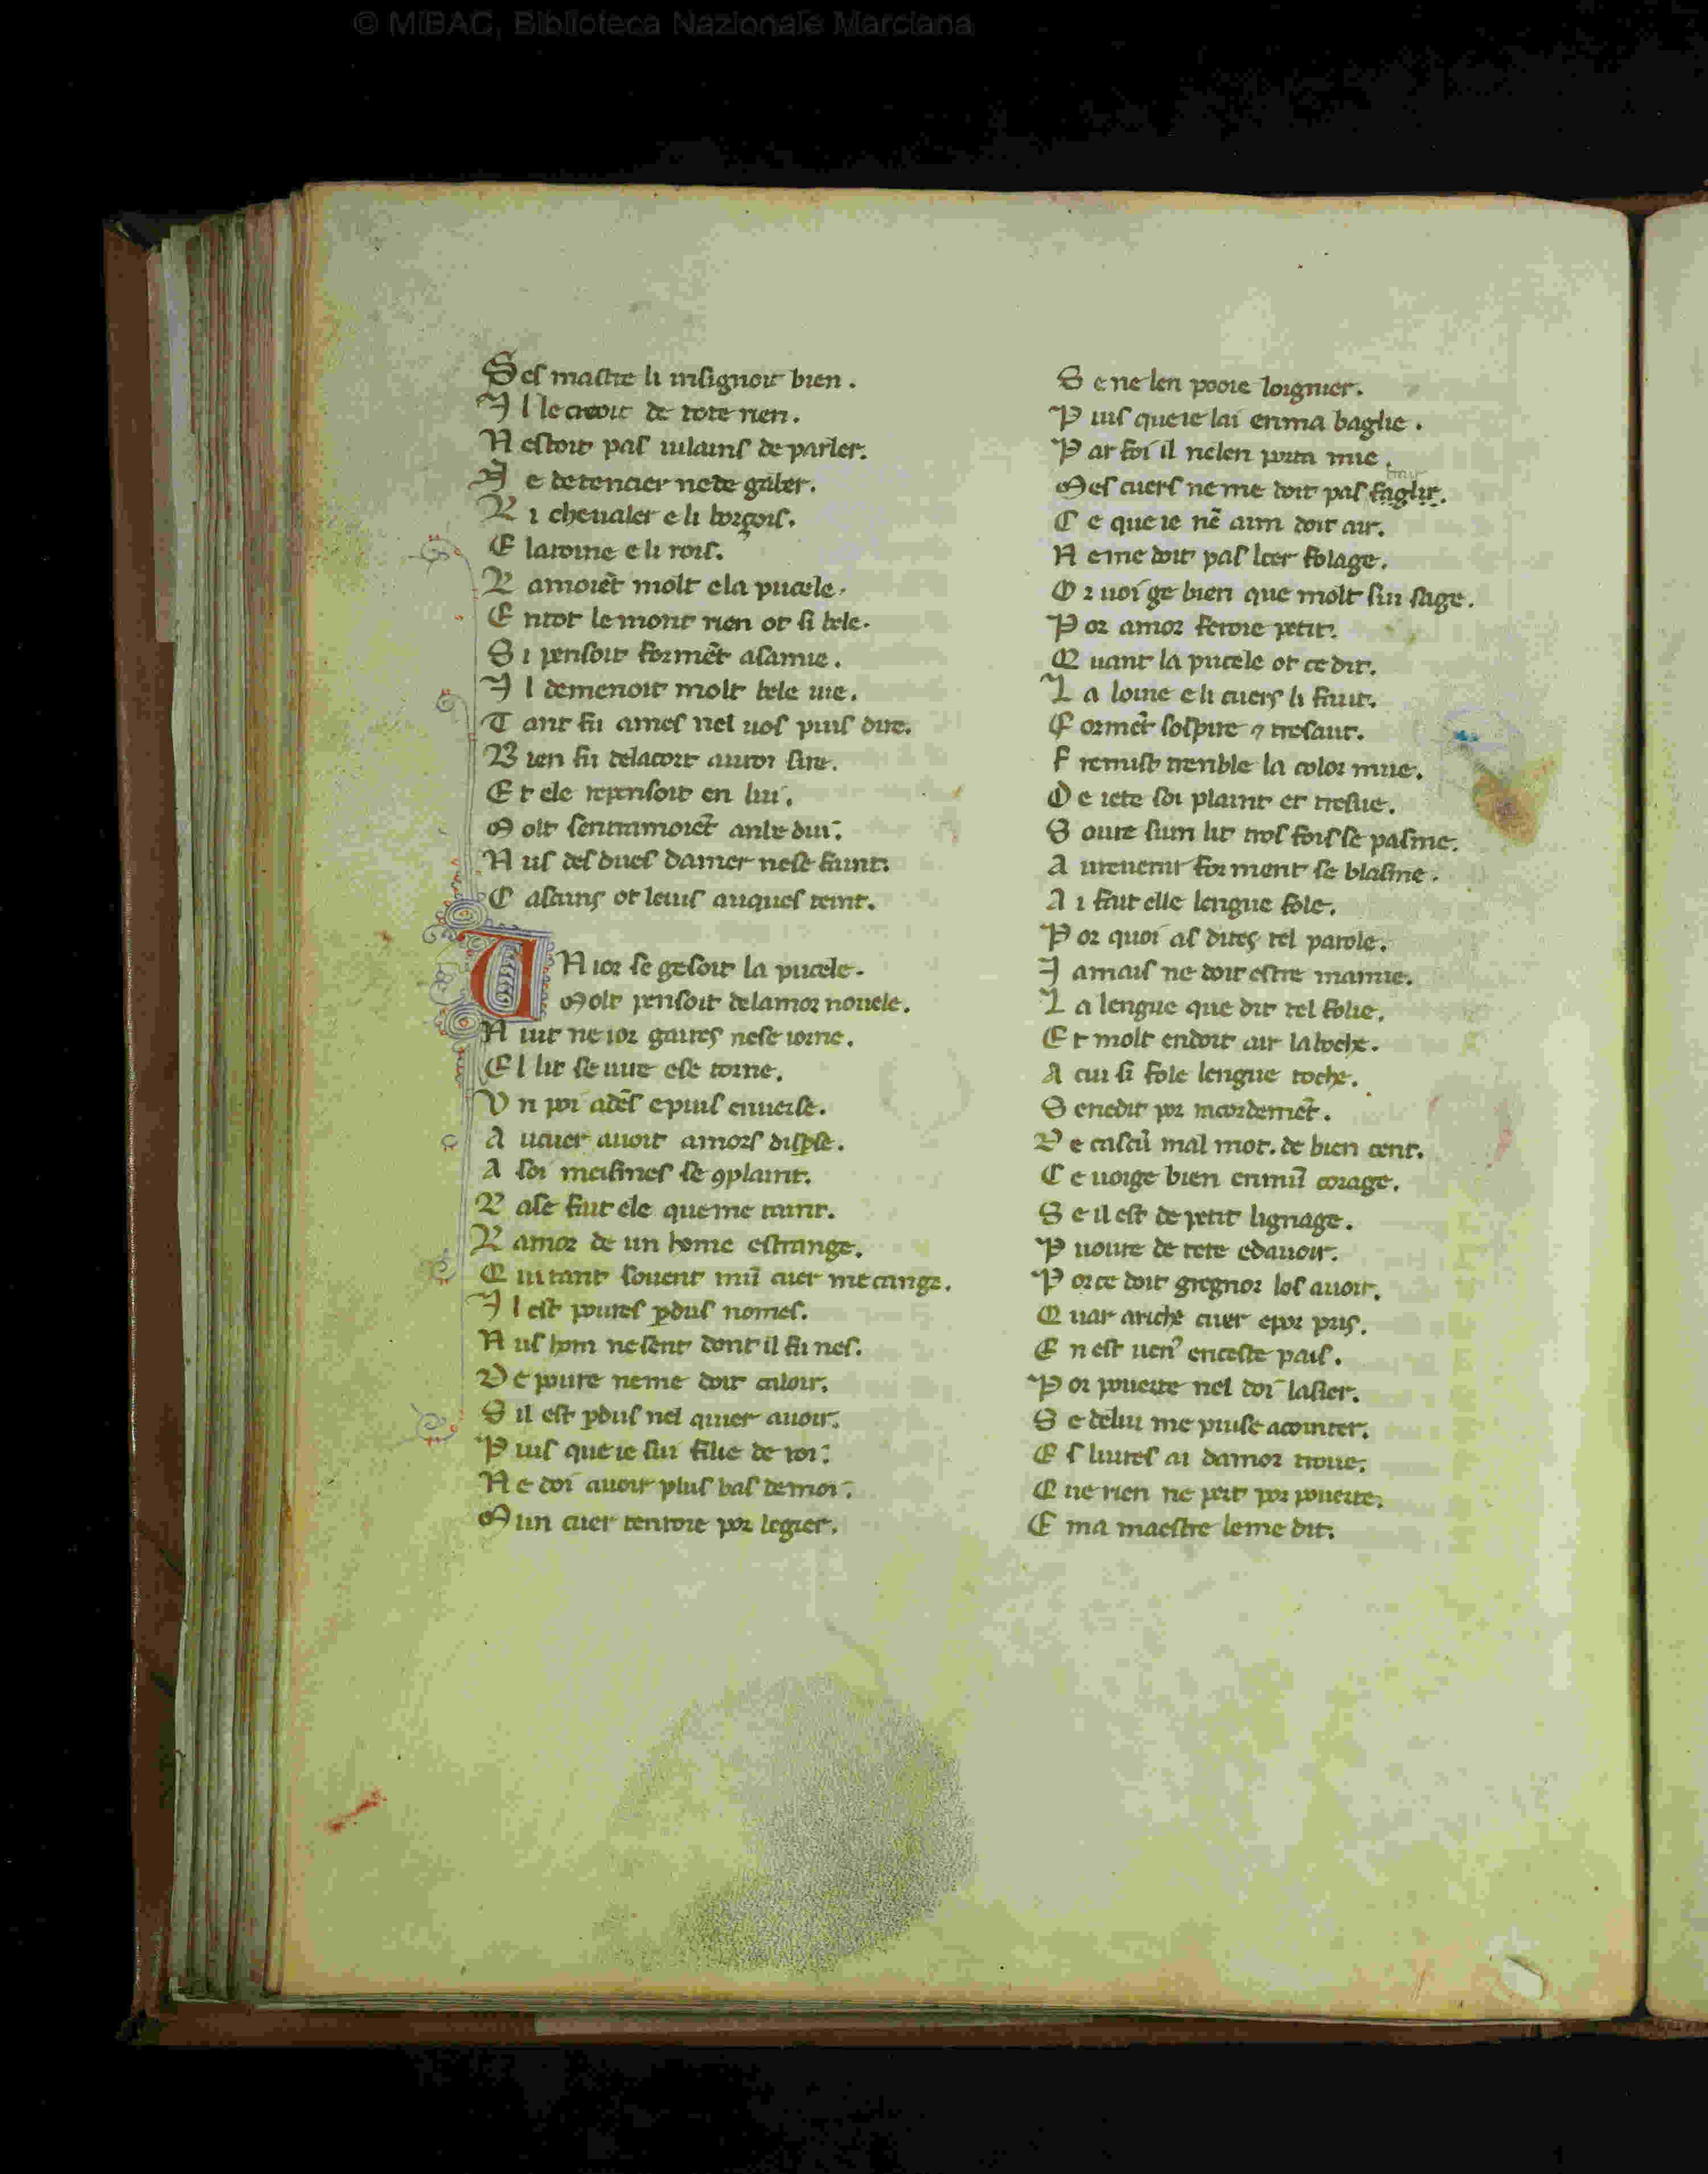 © MiBAC, Biblioteca Nazionale Marciana
Ses mastre li insignoit bien.
I l le creoit de tote rien.
N estoit pas uilains de parler.
N e de tencier ne de gaber.
L i cheualer e li borgois.
E la roine e li rois.
L amoiēt molt e la pucele.
E n tot le mont rien ot si bele.
S i pensoit formēt a samie.
I l demenoit molt bele uie.
T ant fu ames nel uos puis dire.
B ien fu de la cort au roi sire.
E t ele repensoit en lui.
M olt sentramoiēt anbedui.
N us des dues damer ne se faint.
C ascuns ot le uis auques teint.
U N ior se gesoit la pucele.
M olt pensoit de lamor nouele.
N uit ne ior gaires ne se iorne.
E l lit se uire e se torne.
U n poi adēs e puis enuerse.
A u cuer auoit amors disperse.
A soi meismes se 9plaint.
L asse fait ele que me taint.
L amor de un home estrange.
Q ui tant souent mū cuer me cange.
I l est poures pdus nomes.
N us hom ne sent dont il fu nes.
D e poure ne me doit caloir.
S il est pdus nel quier auoir.
P uis que ie sui filie de roi.
N e doi auoir plus bas de moi.
M un cuer tenroie por legier.
S e ne len pooie loignier.
P uis que ie lai en ma baglie.
P ar foi il ne len porta mie.
M es cuers ne me doit pas faglir.
C e que ie nē aim doit air.
N e me doit pas leer folage.
O r uoi ge bien que molt sui sage.
P or amor feroie petit.
Q uant la pucele ot ce dit.
L a loine e li cuers li fruit.
F ormēt sospire ⁊ tresaut.
F remist trenble la color mue.
D e iete soi plaint et tresue.
S oure sum lit trois fois se pasme.
A u reuenir forment se blasme.
A i fait elle lengue fole.
P or quoi as dites tel parole.
I amais ne doit estre mamie.
L a lengue que dit tel folie.
E t molt en doit air la boche.
A cui si fole lengue toche.
S en e dit por mcordemēt.
D e cascū mal mot. de bien cent.
C e uoige bien en mū corage.
S e il est de petit lignage.
P uoure de tere e dauoir.
P or ce doit gregnor los auoir.
Q uar a riche cuer e por pris.
E n est uen9 en ceste pais.
P or pouerte nel doi lasier.
S e de lui me puise acointer.
E s liures ai damor troue.
Q ue rien ne pert por pouerte.
E ma maestre le me dit.